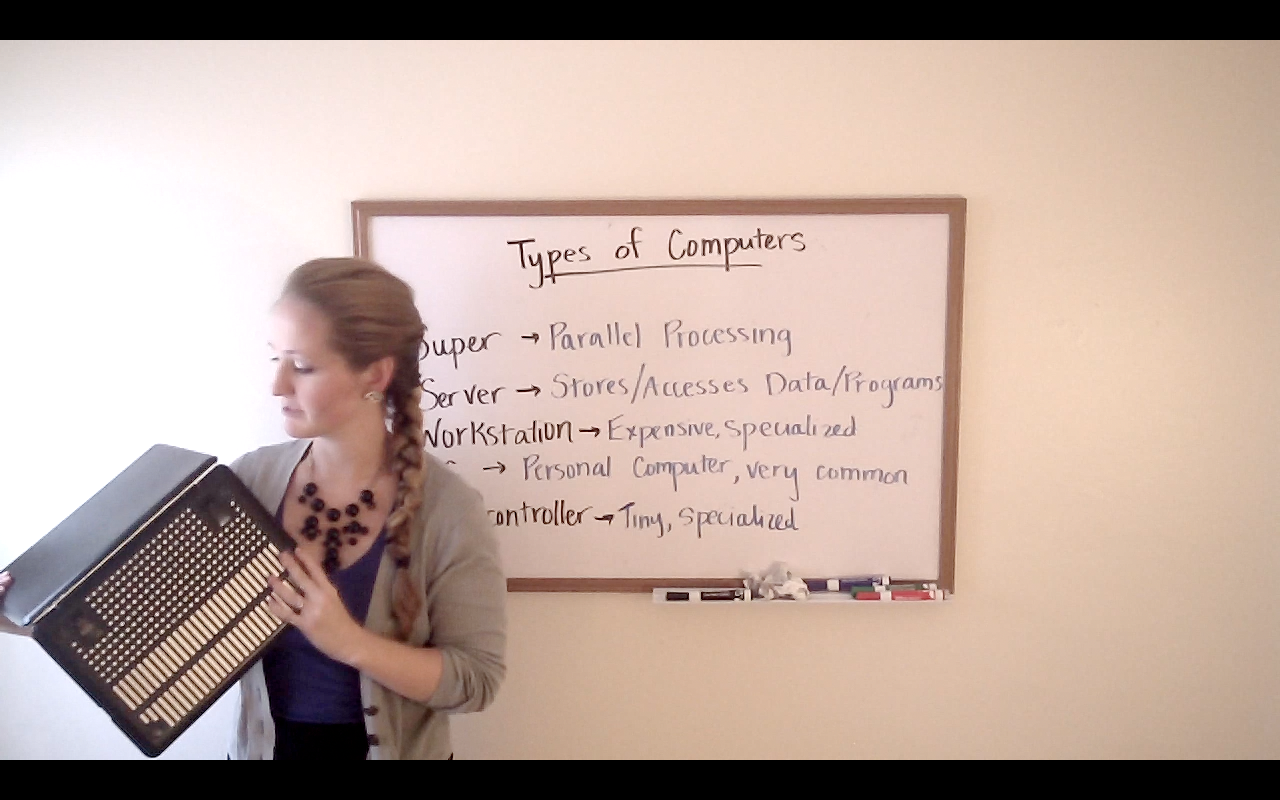 Types of Computers
Super → Parallel Processing
Server → Stores/Accesses Data/Programs
Workstation → Expensive, Specialized
→ Personal Computer, very common
controller → Tiny, Specialized